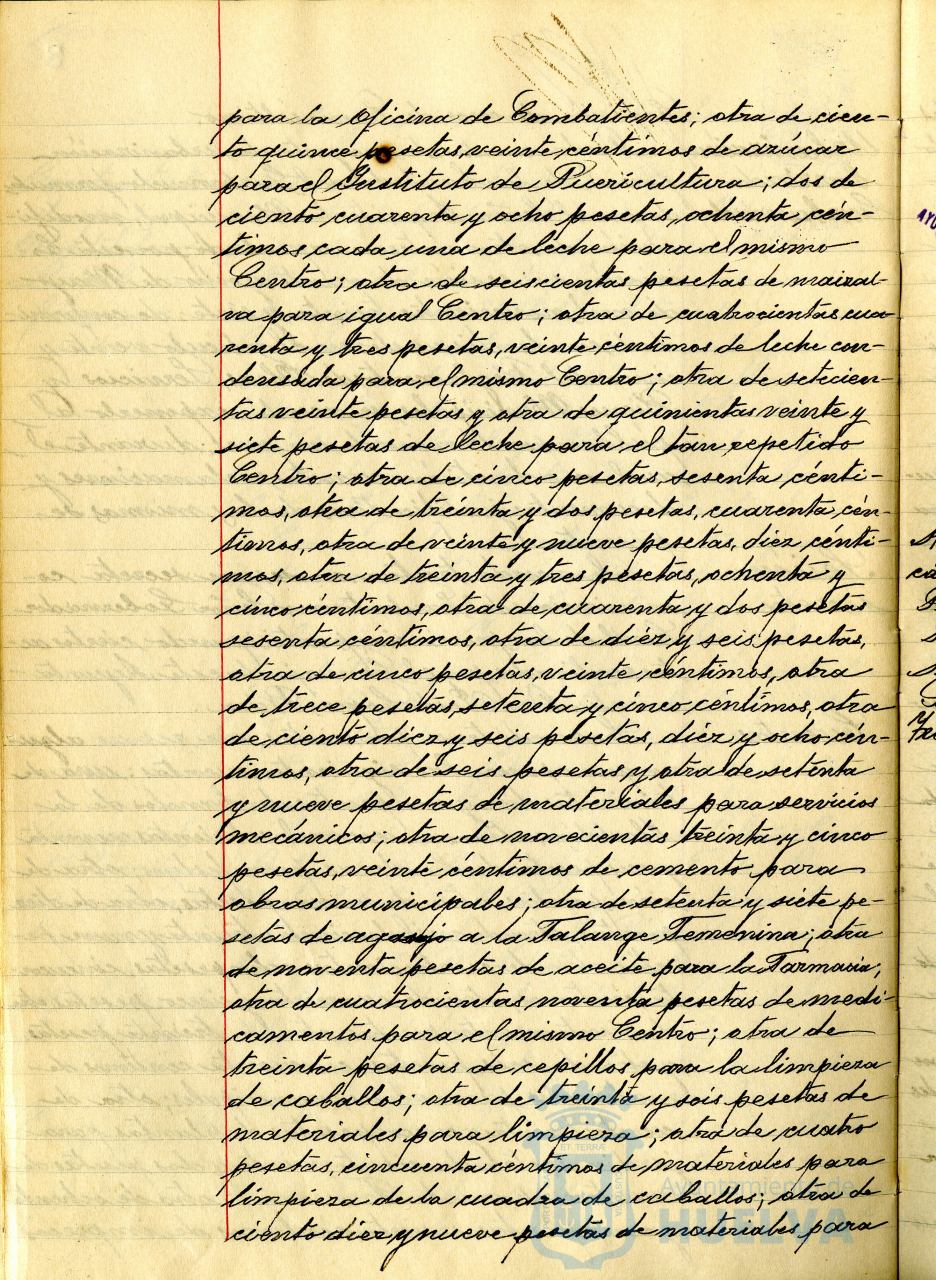 para la Oficina de Combatientes; otra de cien-
to quince pesetas, veinte céntimos de azúcar
para el Instituto de Puericultura; dos de
ciento cuarenta y ocho pesetas, ochenta cén-
timos cada una de leche para el mismo
Centro; otra de seiscientas pesetas de maizal-
va para igual Centro; otra de cuatrocientas cua-
renta y tres pesetas, veinte céntimos de leche con-
densada para el mismo Centro; otra de setecien-
tas veinte pesetas y otra de quinientas veinte y
siete pesetas de leche para el tan repetido
Centro; otra de cinco pesetas, sesenta cénti-
mos, otra de tréinta y dos pesetas, cuarenta cén-
timos, otra de veinte y nueve pesetas, diez cénti-
mos, otra de treinta y tres pesetas, ochenta y
cinco céntimos, otra de cuarenta y dos pesetas
sesenta céntimos, otra de diéz y seis pesetas,
otra de cinco pesetas, veinte céntimos, otra
de trece pesetas, setenta y cinco céntimos, otra
de ciento diez y seis pesetas, diez y ocho cén-
timos, otra de seis pesetas y otra de setenta
y nueve pesetas de materiales para servicios
mecánicos; otra de novecientas treinta y cinco
pesetas, veinte céntimos de cemento para
obras municipales; otra de setenta y siete pe-
setas de agasajo a la Falange Femenina; otra
de noventa pesetas de aceite para la Farmacia;
otra de cuatrocientas noventa pesetas de medi-
camentos para el mismo Centro; otra de
treinta pesetas de cepillos para la limpieza
de caballos; otra de treinta y seis pesetas de
materiales para limpieza; otra de cuatro
pesetas, cincuenta céntimos de materiales para
limpieza de la cuadra de caballos; otra de
ciento diez y nueve pesetas de materiales para
Ayuntamiento de
HUELVA